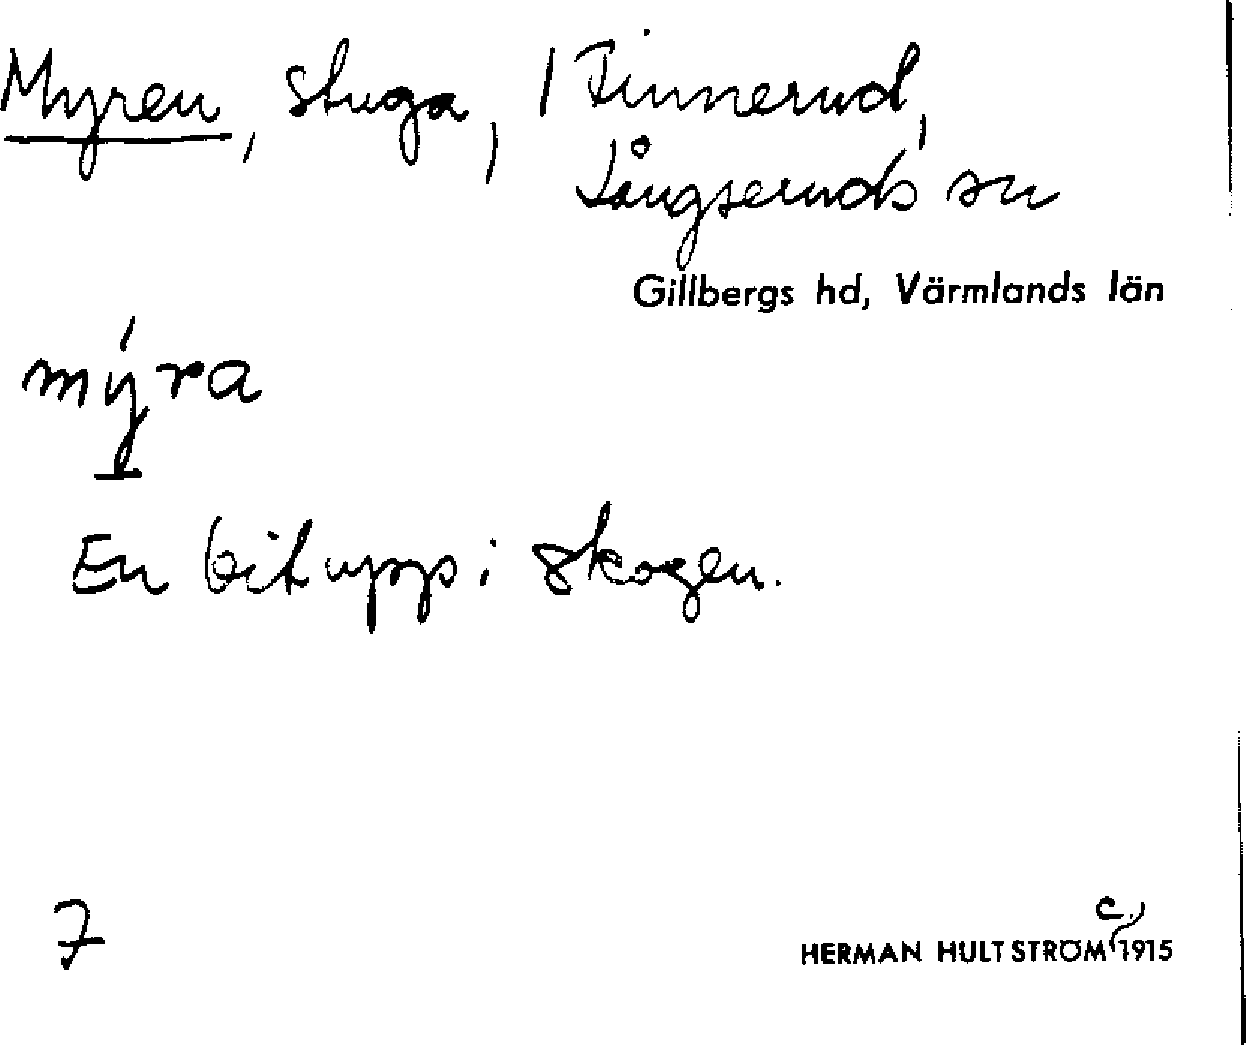 Myren, stuga, / Finnerud,
Långseruds sn
Gillbergs hd, Värmlands län
mýra
En bit upp i skogen.
c.,
7 HERMAN HULTSTRÖM 1915